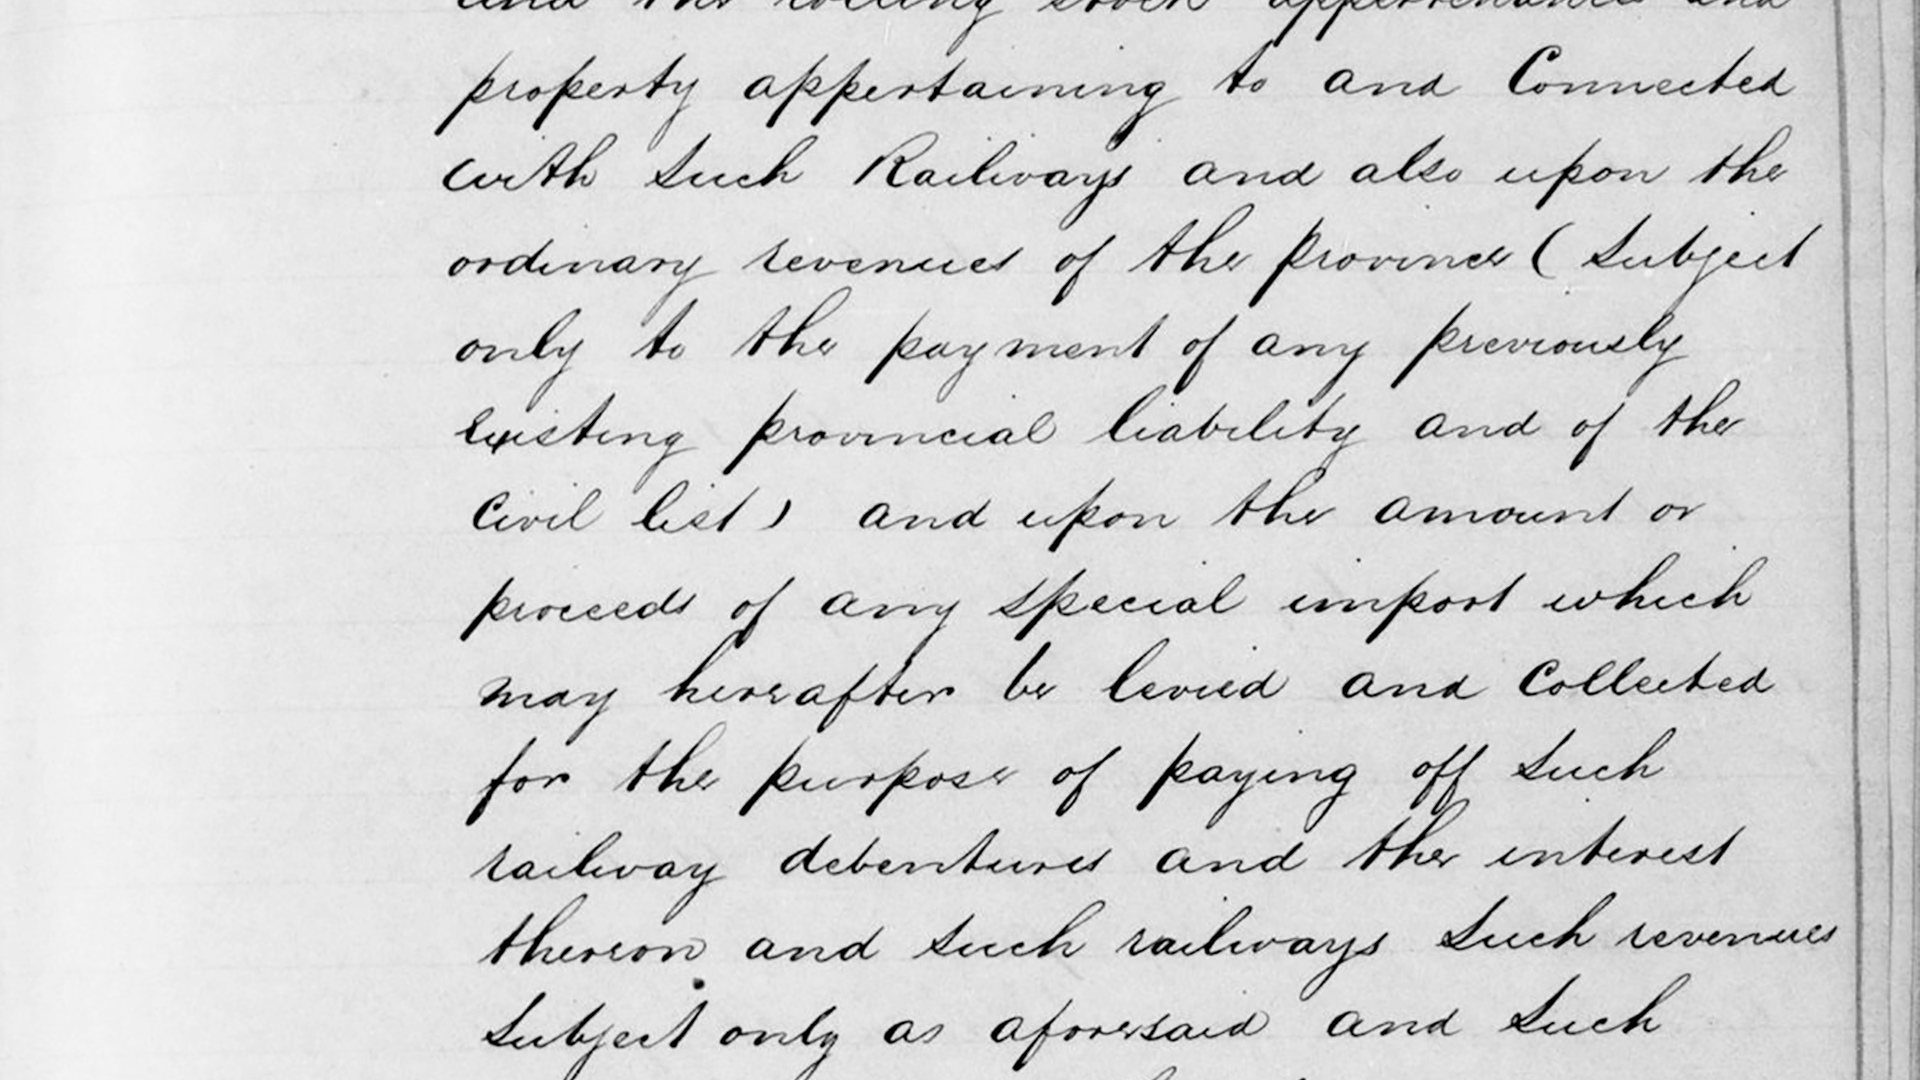 and the rolling stock appurtenances and
property appertaining to and Connected
with such Railways and also upon the
ordinary revenues of the province ( subject
only to the payment of any previously
existing provincial liability and of the
Civil list ) and upon the amount or
proceeds of any special impost which
may hereafter be levied and Collected
for the purpose of paying off such
railway debentures and the interest
thereon and such railways such revenues
subject only as aforesaid and such